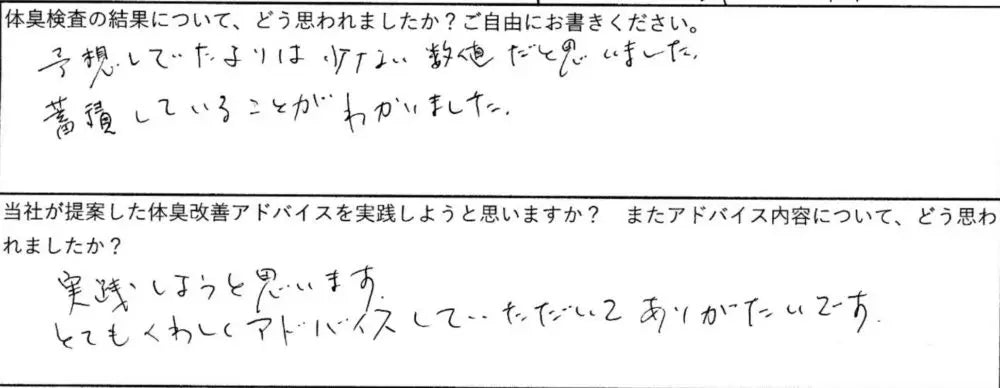 体臭検査の結果について、どう思われましたか？ご自由にお書きください。
予想していたよりは少ない数値だと思いました。
蓄積していることがわかいました。
当社が提案した体臭改善アドバイスを実践しようと思いますか？　またアドバイス内容について、どう思わ
れましたか？
実践しようと思います。
とてもくわしくアドバイスしていただいてありがたいです。